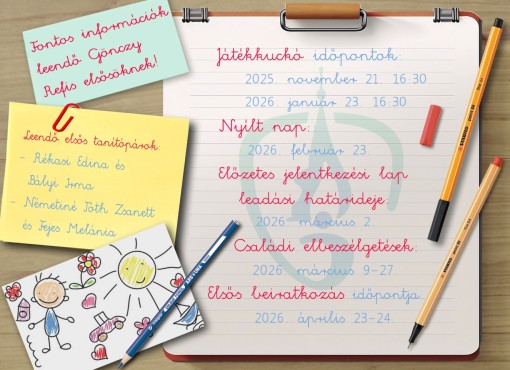 Fontos információk
leendő Gönczy
Refis elsősöknek!
Leendő elsős tanítópárok:
- Rékasi Edina és
Bályi Irma
- Németiné Tóth Zsanett
és Fejes Melánia
Játékkuckó időpontok:
2025. november 21. 16:30
2026. január 23. 16:30
Nyílt nap:
2026. február 23.
Előzetes jelentkezési lap
leadási határideje:
2026. március 2.
Családi elbeszélgetések:
2026. március 9-27.
Elsős beiratkozás időpontja:
2026. április 23-24.